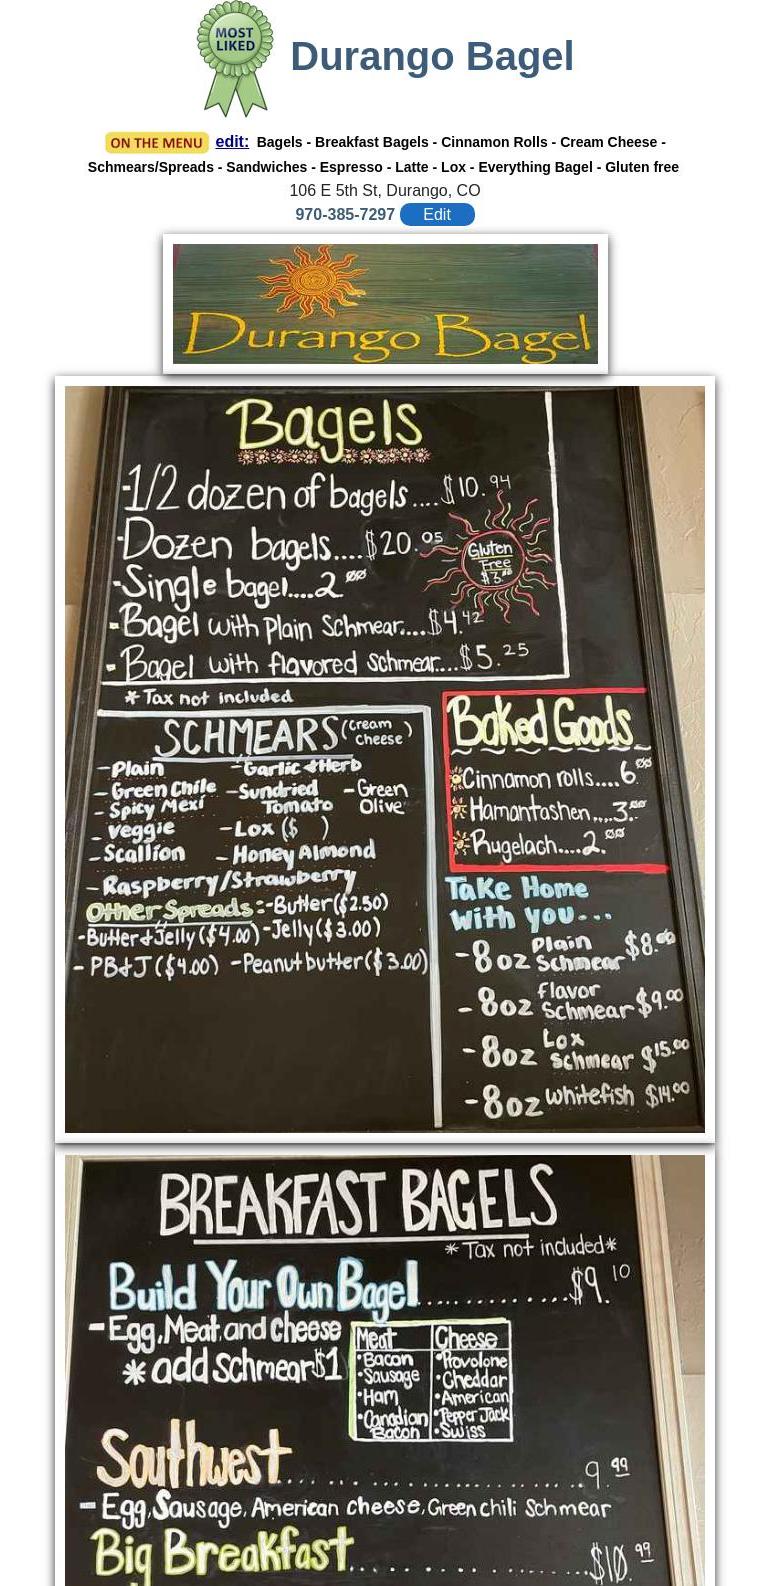 MOST
LIKED
Durango Bagel
ON THE MENU edit: Bagels - Breakfast Bagels - Cinnamon Rolls - Cream Cheese -
Schmears/Spreads - Sandwiches - Espresso - Latte - Lox - Everything Bagel - Gluten free
106 E 5th St, Durango, CO
970-385-7297 Edit
Durango Bagel
Bagels
-1/2 dozen of bagels....$10.94
-Dozen bagels.....$20.05
-Single bagel....2 00
Gluten
Free
$3.00
-Bagel with Plain Schmear....$4.42
-Bagel with flavored Schmear...$5.25
*Tax not included
SCHMEARS (cream
cheese)
-Plain
-Garlic & Herb
-Green Chile
-Sundried
Tomato
-Green
Olive
-Spicy Mexi
-Veggie
-Lox ($ )
-Scallion
-Honey Almond
-Raspberry/Strawberry
Other Spreads: -Butter ($2.50)
-Butter & Jelly ($4.00) -Jelly ($3.00)
-PB&J ($4.00) -Peanut butter ($3.00)
Baked Goods
Cinnamon rolls....6.00
Hamantashen....3.00
Rugelach....2.00
Take Home
With you...
-8oz Plain Schmear $8.00
-8oz flavor Schmear $9.00
-8oz Lox Schmear $15.00
-8oz Whitefish $14.00
BREAKFAST BAGELS
*Tax not included*
Build Your Own Bagel...............$9.10
-Egg, Meat, and Cheese
*add schmear $1
Meat
•Bacon
•Sausage
•Ham
•Canadian
Bacon
Cheese
•Provolone
•Cheddar
•American
•Pepper Jack
•Swiss
Southwest.........................9.99
-Egg, Sausage, American cheese, Green chili Schmear
Big Breakfast....................$10.99